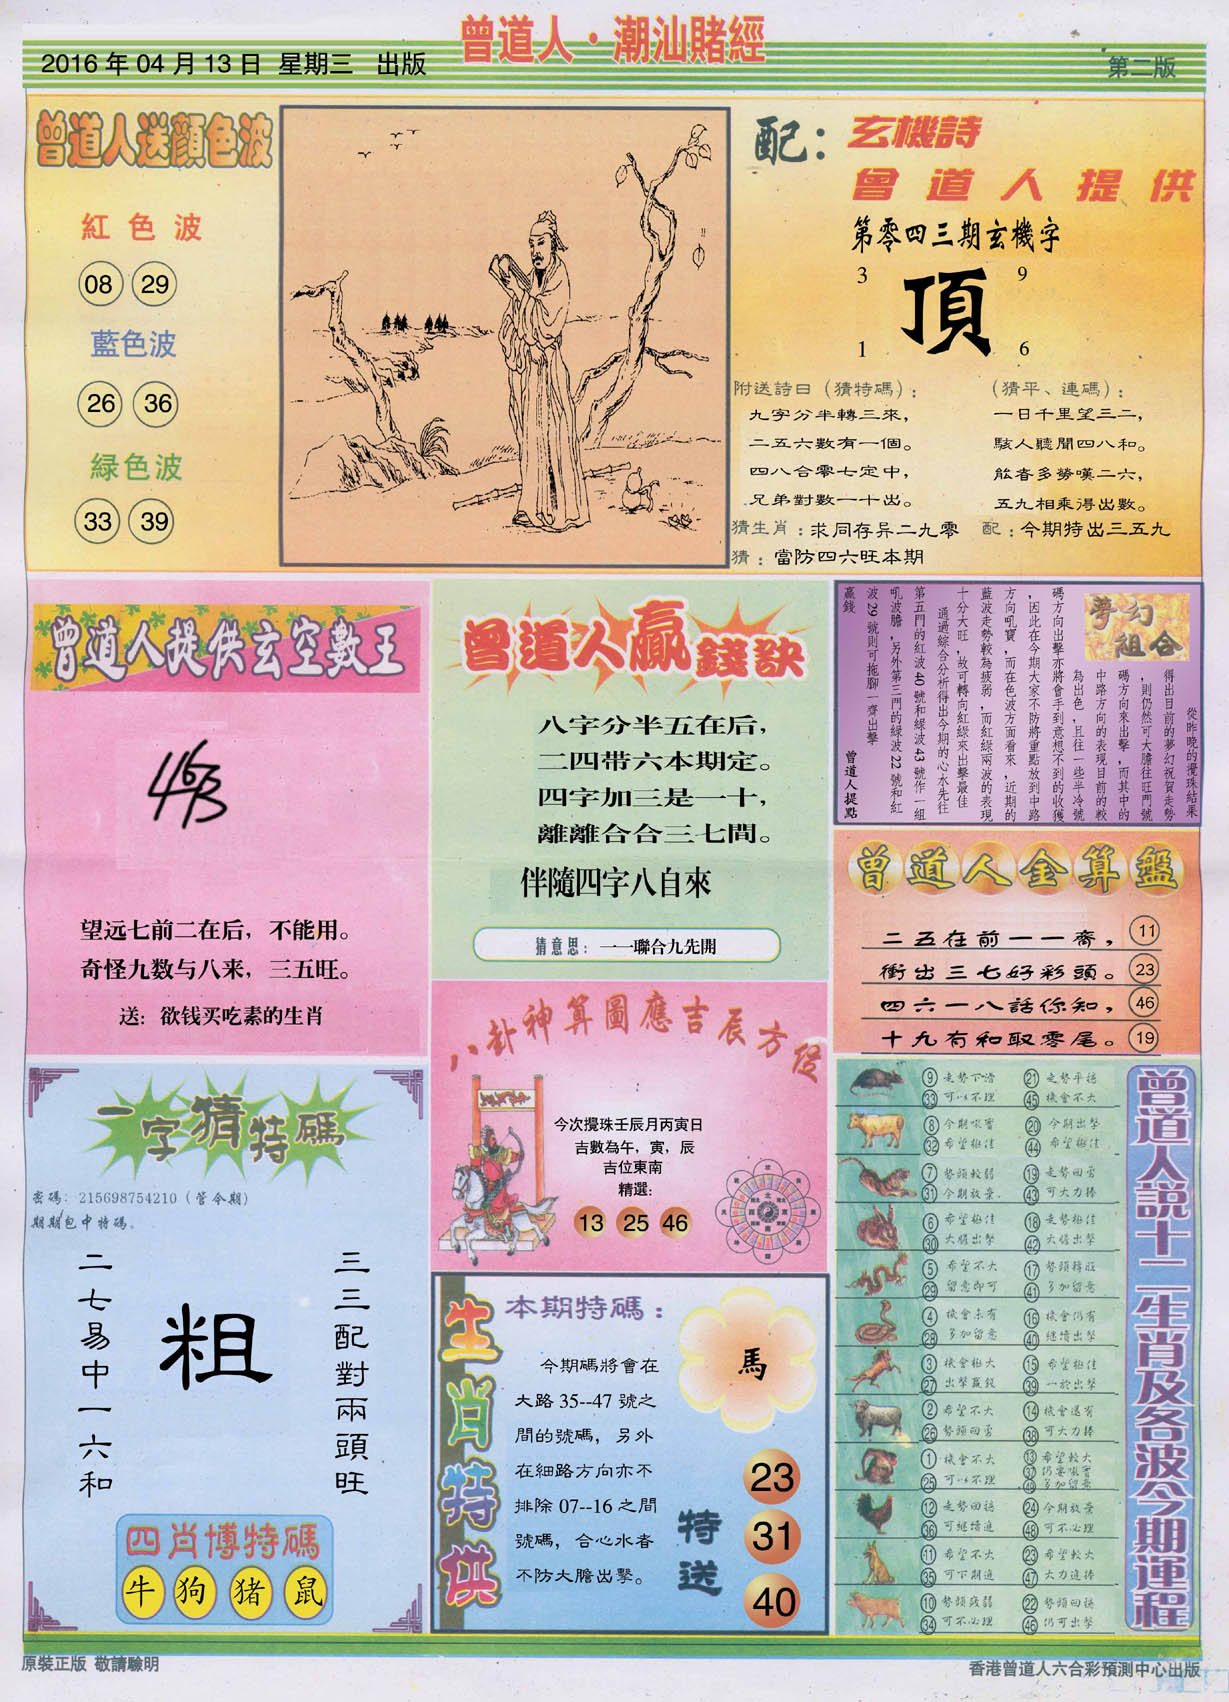 曾道人·潮汕賭經
2016 年 04 月 13 日 星期三 出版
第二版
曾道人送顔色波
紅色波
08 29
藍色波
26 36
緑色波
33 39
配：玄機詩
曾道人提供
第零四三期玄機字
3 9
頂
1 6
附送詩曰（猜特碼）：
九字分半轉三來，
二五六數有一個。
四八合零七定中，
兄弟對數一十出。
（猜平、連碼）：
一日千里望三二，
駭人聽聞四八和。
能者多勞嘆二六，
五九相乘得出數。
猜生肖：求同存异二九零
配：今期特出三五九
猜：當防四六旺本期
曾道人提供玄空數王
望远七前二在后，不能用。
奇怪九数与八来，三五旺。
送：欲钱买吃素的生肖
曾道人贏錢訣
八字分半五在后，
二四带六本期定。
四字加三是一十，
離離合合三七間。
伴隨四字八自來
猜意思：一一聯合九先開
夢幻組合
從昨晚的攪珠結果
得出目前的夢幻祝賀走勢
，則仍然可大膽往旺門號
碼方向來出擊，而其中的
中路方向的表現目前的較
為出色，且往一些半冷號
碼方向出擊亦將會手到意想不到的收獲
，因此在今期大家不防將重點放到中路
方向吼寶，而在色波方面看來，近期的
藍波走勢較為疲弱，而紅緑兩波的表現
十分大旺，故可轉向紅緑來出擊最佳
通過綜合分析得出今期的心水先往
第五門的紅波 40 號和緑波 43 號作一組
吼波膽，另外第三門的緑波 22 號和紅
波 29 號則可拖腳一齊出擊
贏錢
曾道人提點
曾道人金算盤
二五在前一一齊， 11
衝出三七好彩頭。 23
四六一八話你知， 46
十九有和取零尾。 19
八卦神算圖應吉辰方位
今次攪珠壬辰月丙寅日
吉數為午，寅，辰
吉位東南
精選:
13 25 46
一字猜特碼
密碼：215698754210（管令期）
期期包中特碼。
三三配對兩頭旺
粗
二七易中一六和
四肖博特碼
牛 狗 猪 鼠
生肖特供
本期特碼：
今期碼將會在
大路 35--47 號之
間的號碼，另外
在細路方向亦不
排除 07--16 之間
號碼，合心水者
不防大膽出擊。
馬
特送
23
31
40
曾道人説十二生肖及各波今期運程
9 走勢下滑 21 走勢平穩
33 可以不理 45 機會不大
8 今期吼實 20 今期出擊
32 希望極佳 44 希望極佳
7 勢頭較弱 19 走勢回勇
31 今期放棄 43 可大力捧
6 希望極佳 18 走勢極佳
30 大膽出擊 42 大膽出擊
5 希望不大 17 勢頭轉旺
29 留意即可 41 多加留意
4 機會未有 16 機會仍有
28 多加留意 40 繼續出擊
3 機會極大 15 希望極佳
27 出擊贏錢 39 一於出擊
2 希望不大 14 機會還有
26 勢頭回勇 38 可大力捧
1 機會不大 13 希望較大
25 可以不理 37 仍要吼實
49 多加留意
12 走勢回穩 24 今期放棄
36 可繼續追 48 可不必理
11 希望不大 23 希望較大
35 可下期追 47 大力追捧
10 勢頭疲弱 22 勢頭回穩
34 可不必理 46 仍可出擊
原裝正版 敬請驗明
香港曾道人六合彩預測中心出版